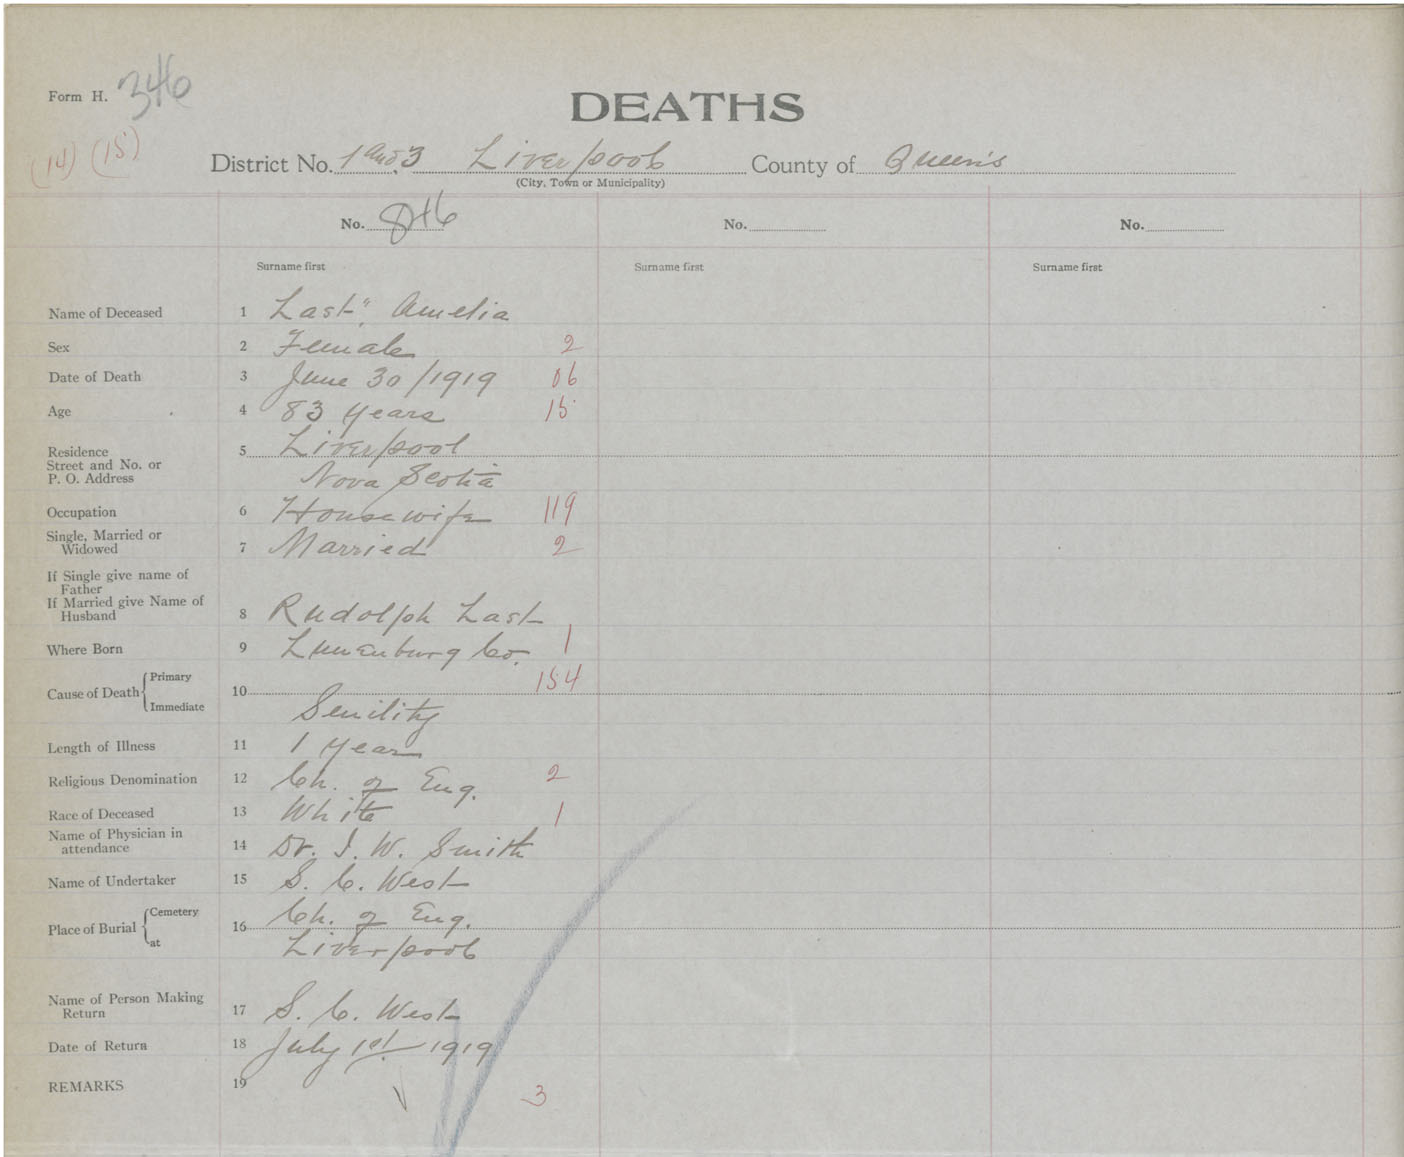 Form H. 346
DEATHS
(14) (15)
District No. 1 and 3 Liverpool County of Queen's
(City, Town or Municipality)
No. 846 No. No.
Surname first Surname first Surname first
Name of Deceased 1 Last", Amelia
Sex 2 Female 2
Date of Death 3 June 30/1919 06
Age 4 83 years 15
Residence 5 Liverpool
Street and No. or
P. O. Address Nova Scotia
Occupation 6 Housewife 119
Single, Married or
Widowed 7 Married 2
If Single give name of
Father
If Married give Name of
Husband 8 Rudolph Last
Where Born 9 Lunenburg Co. 1
Cause of Death Primary 10 154
Immediate Senility
Length of Illness 11 1 year
Religious Denomination 12 Ch. of Eng. 2
Race of Deceased 13 White 1
Name of Physician in
attendance 14 Dr. I. W. Smith
Name of Undertaker 15 S. C. West
Place of Burial Cemetery 16 Ch. of Eng.
at Liverpool
Name of Person Making
Return 17 S. C. West
Date of Return 18 July 1st 1919
REMARKS 19
3